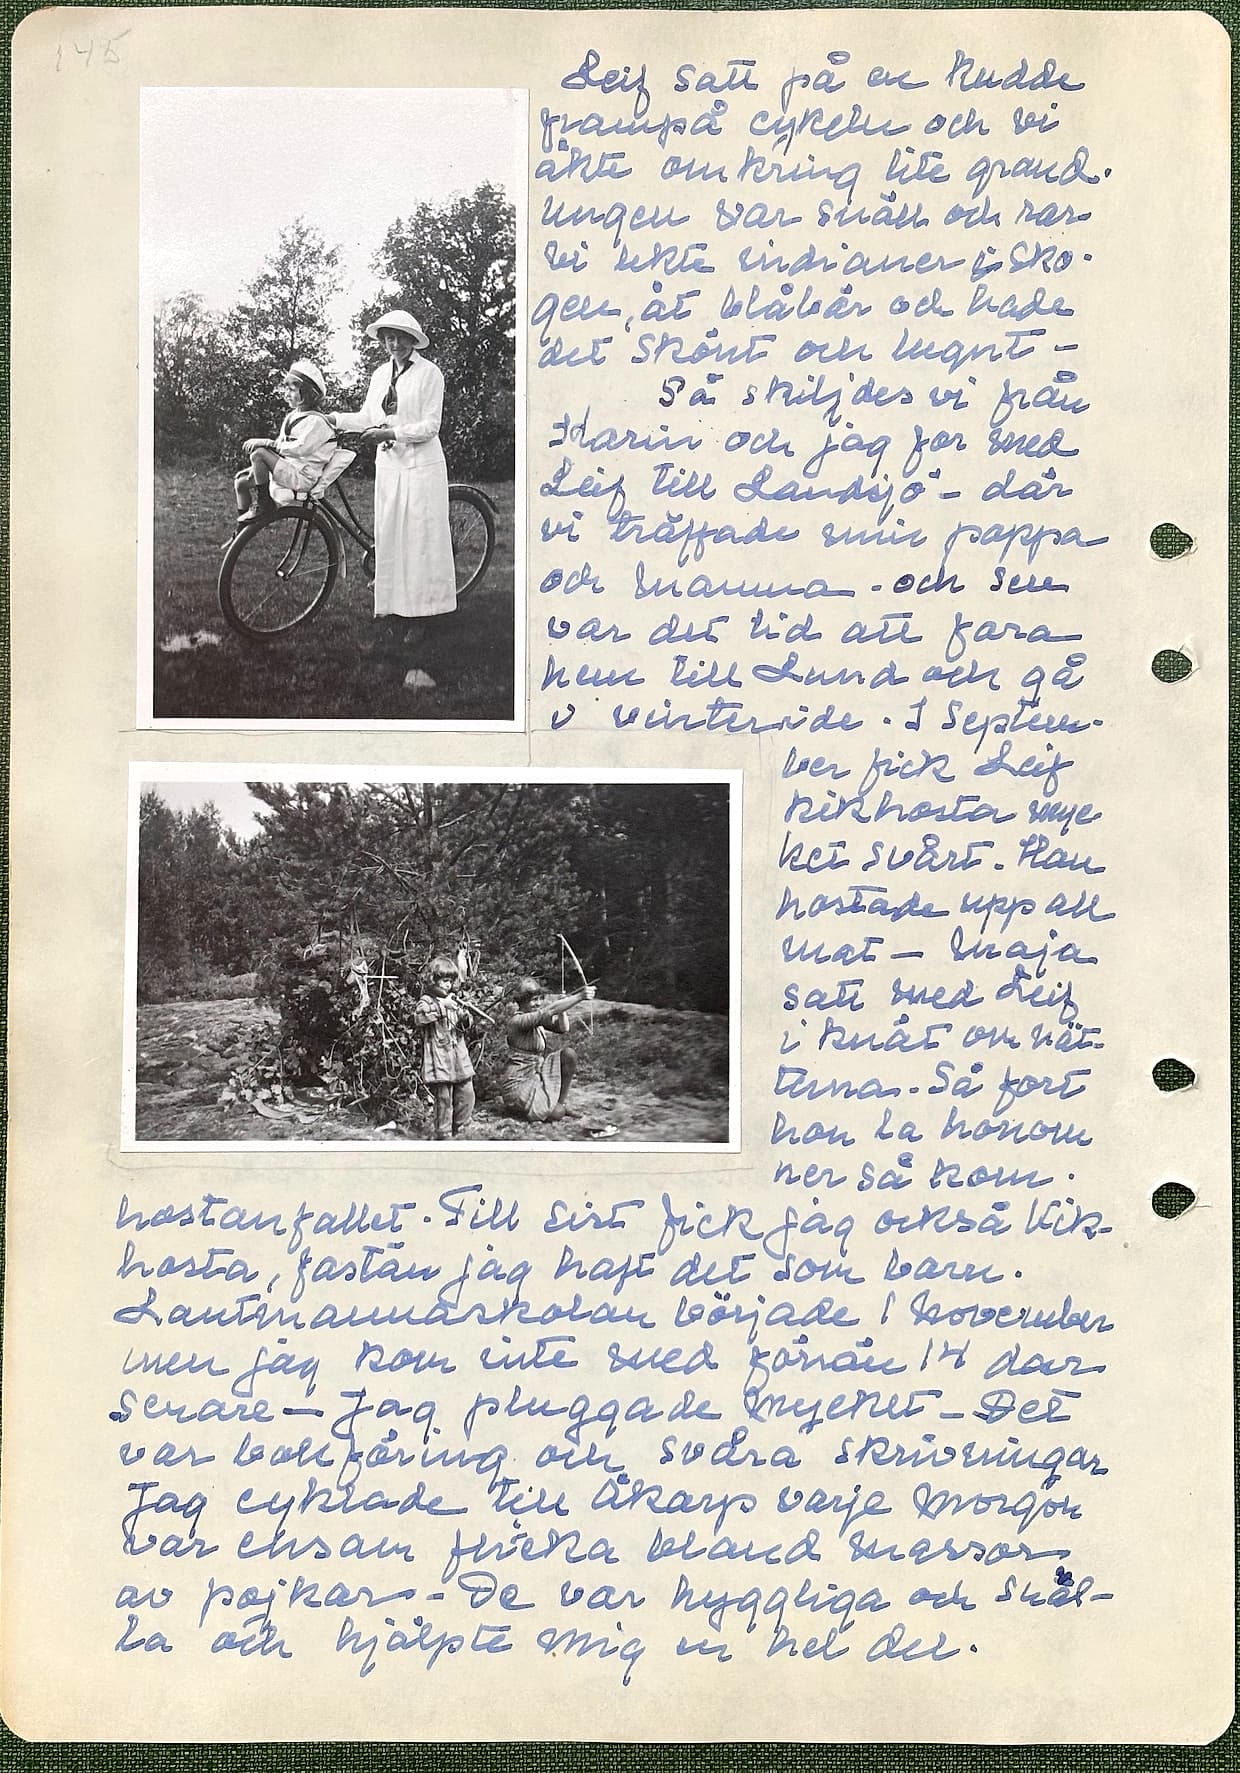 145
Leif satt på en kudde
frampå cykeln och vi
åkte omkring lite grand.
Ungen var snäll och rar
Vi lekte indianer i sko-
gen, åt blåbär och hade
det skönt och lugnt -
Så skiljdes vi från
Karin och jag for med
Leif till Landsjö - där
vi träffade min pappa
och mamma - och sen
var det tid att fara
hem till Lund och gå
i vinteride. I Septem-
ber fick Leif
kikhosta myc
ket svårt. Han
hostade upp all
mat - Maja
satt med Leif
i knät om nät-
terna. Så fort
hon la honom
ner så kom
hostanfallet. Till sist fick jag också kik-
hosta, fastän jag haft det som barn.
Lantmannaskolan började 1 November
men jag kom inte med förrän 14 dar
senare - Jag pluggade mycket - Det
var bokföring och svåra skrivningar
Jag cyklade till Åkarp varje morgon
Var ensam flicka bland massor
av pojkar - De var hyggliga och snäl-
la och hjälpte mig en hel del.